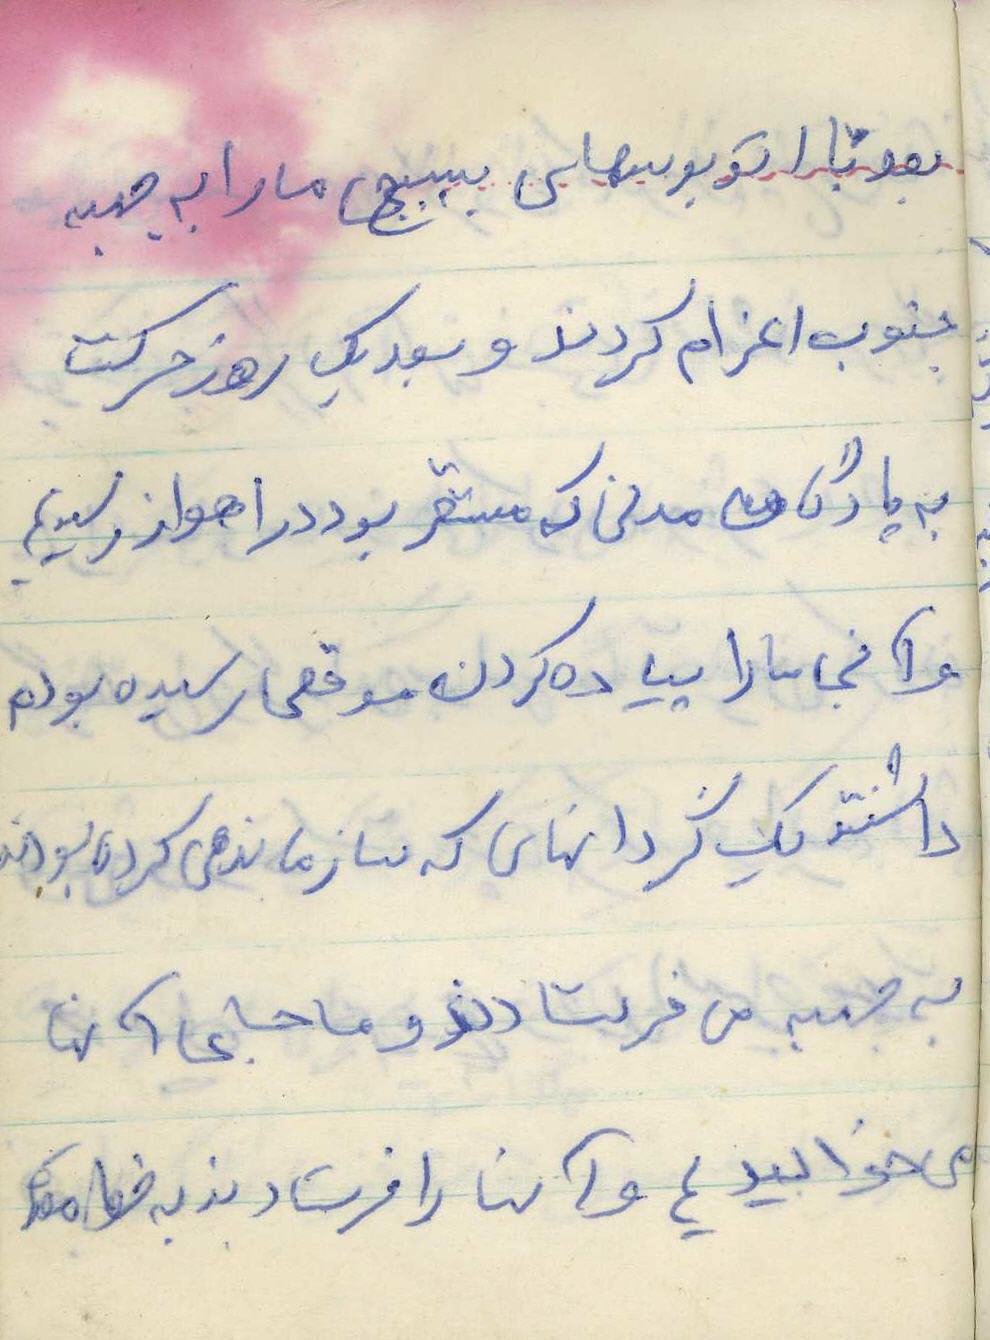 بعد با اتوبوسهای بسیج ما را به جبهه
جنوب اعزام کردند و بعد یک روز حرکت
به پادگان مدنی که مستقر بود در اهواز رسیدیم
و آنجا ما را پیاده کردن موقعی رسیده بودم
داشتند یک گردانهای که سازماندهی کرده بودند
به جبهه می فرستادند و ما جای آنها
می خوابیدیم و آنها را فرستادند به خط